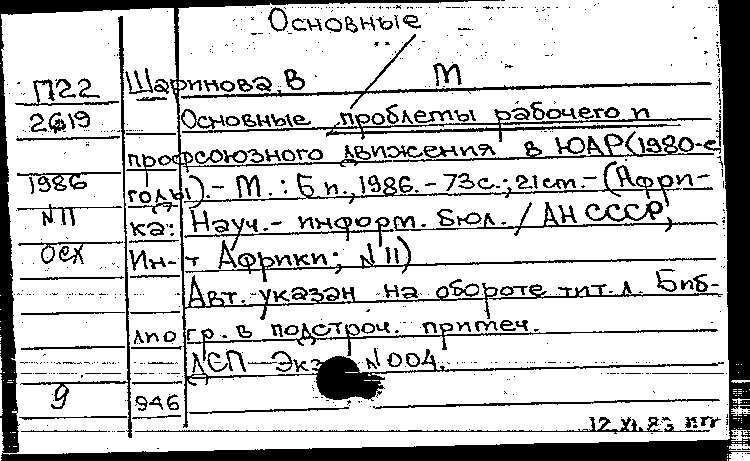 Основные
П22 Шаринова, В М
2619 Основные проблемы рабочего и
профсоюзного движения в ЮАР (1980-е
1986 годы). - М.: Б и., 1986. - 73с.; 21см. - (Афри-
N11 ка: Науч.- информ. бюл. / АН СССР,
осх Ин-т Африки; N 11)
Авт. указан на обороте тит. л. Биб-
лиогр. в подстроч. примеч.
ДСП Экз. N 004.
9 946